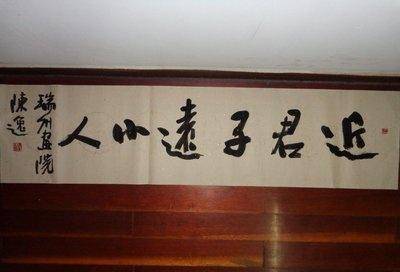 近君子遠小人
瑞介畫院
陳逸